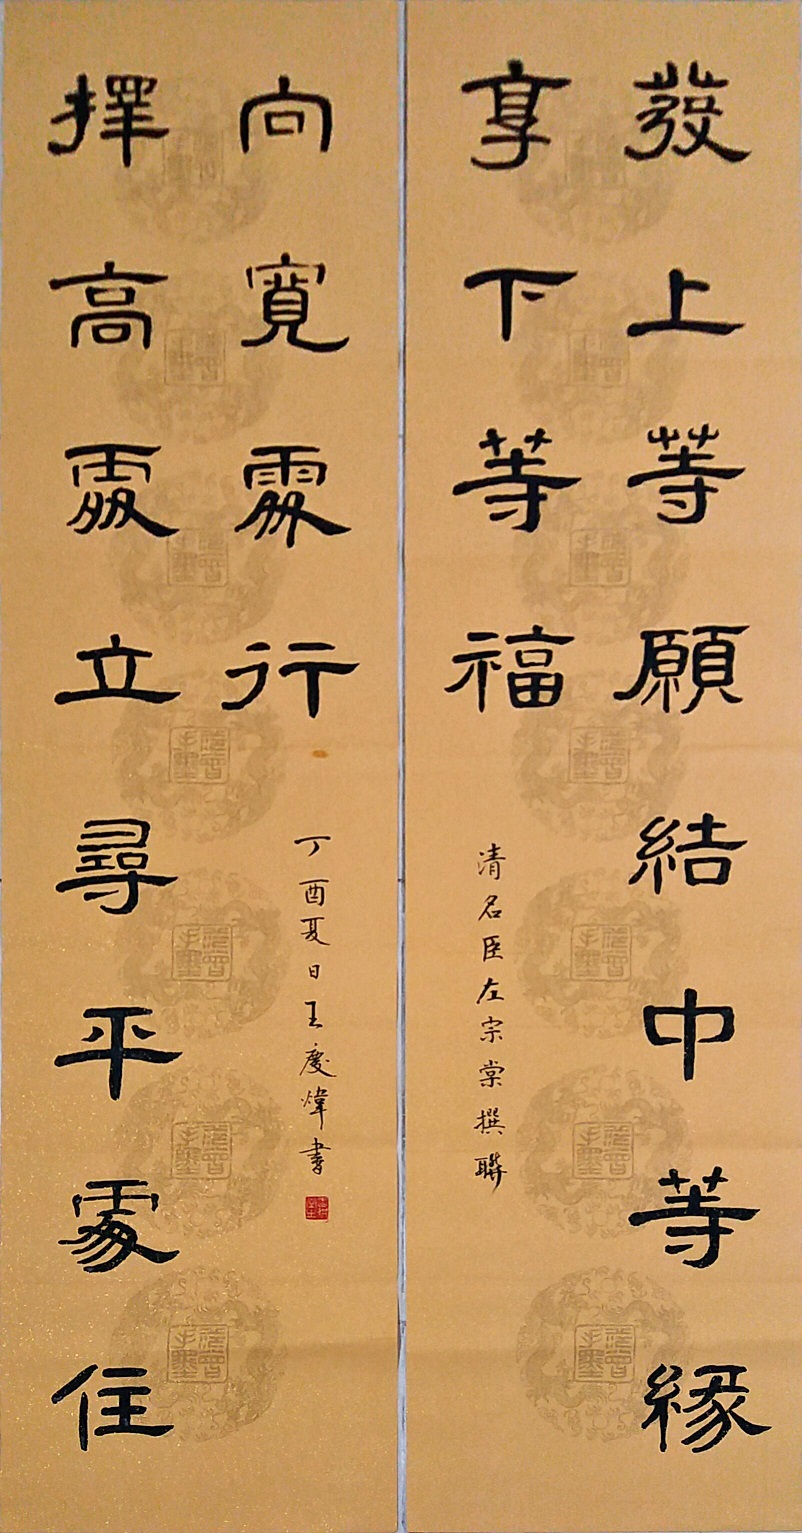 發上等願結中等緣
享下等福
清名臣左宗棠撰聯
擇高處立尋平處住
向寬處行
丁酉夏日王慶煒書